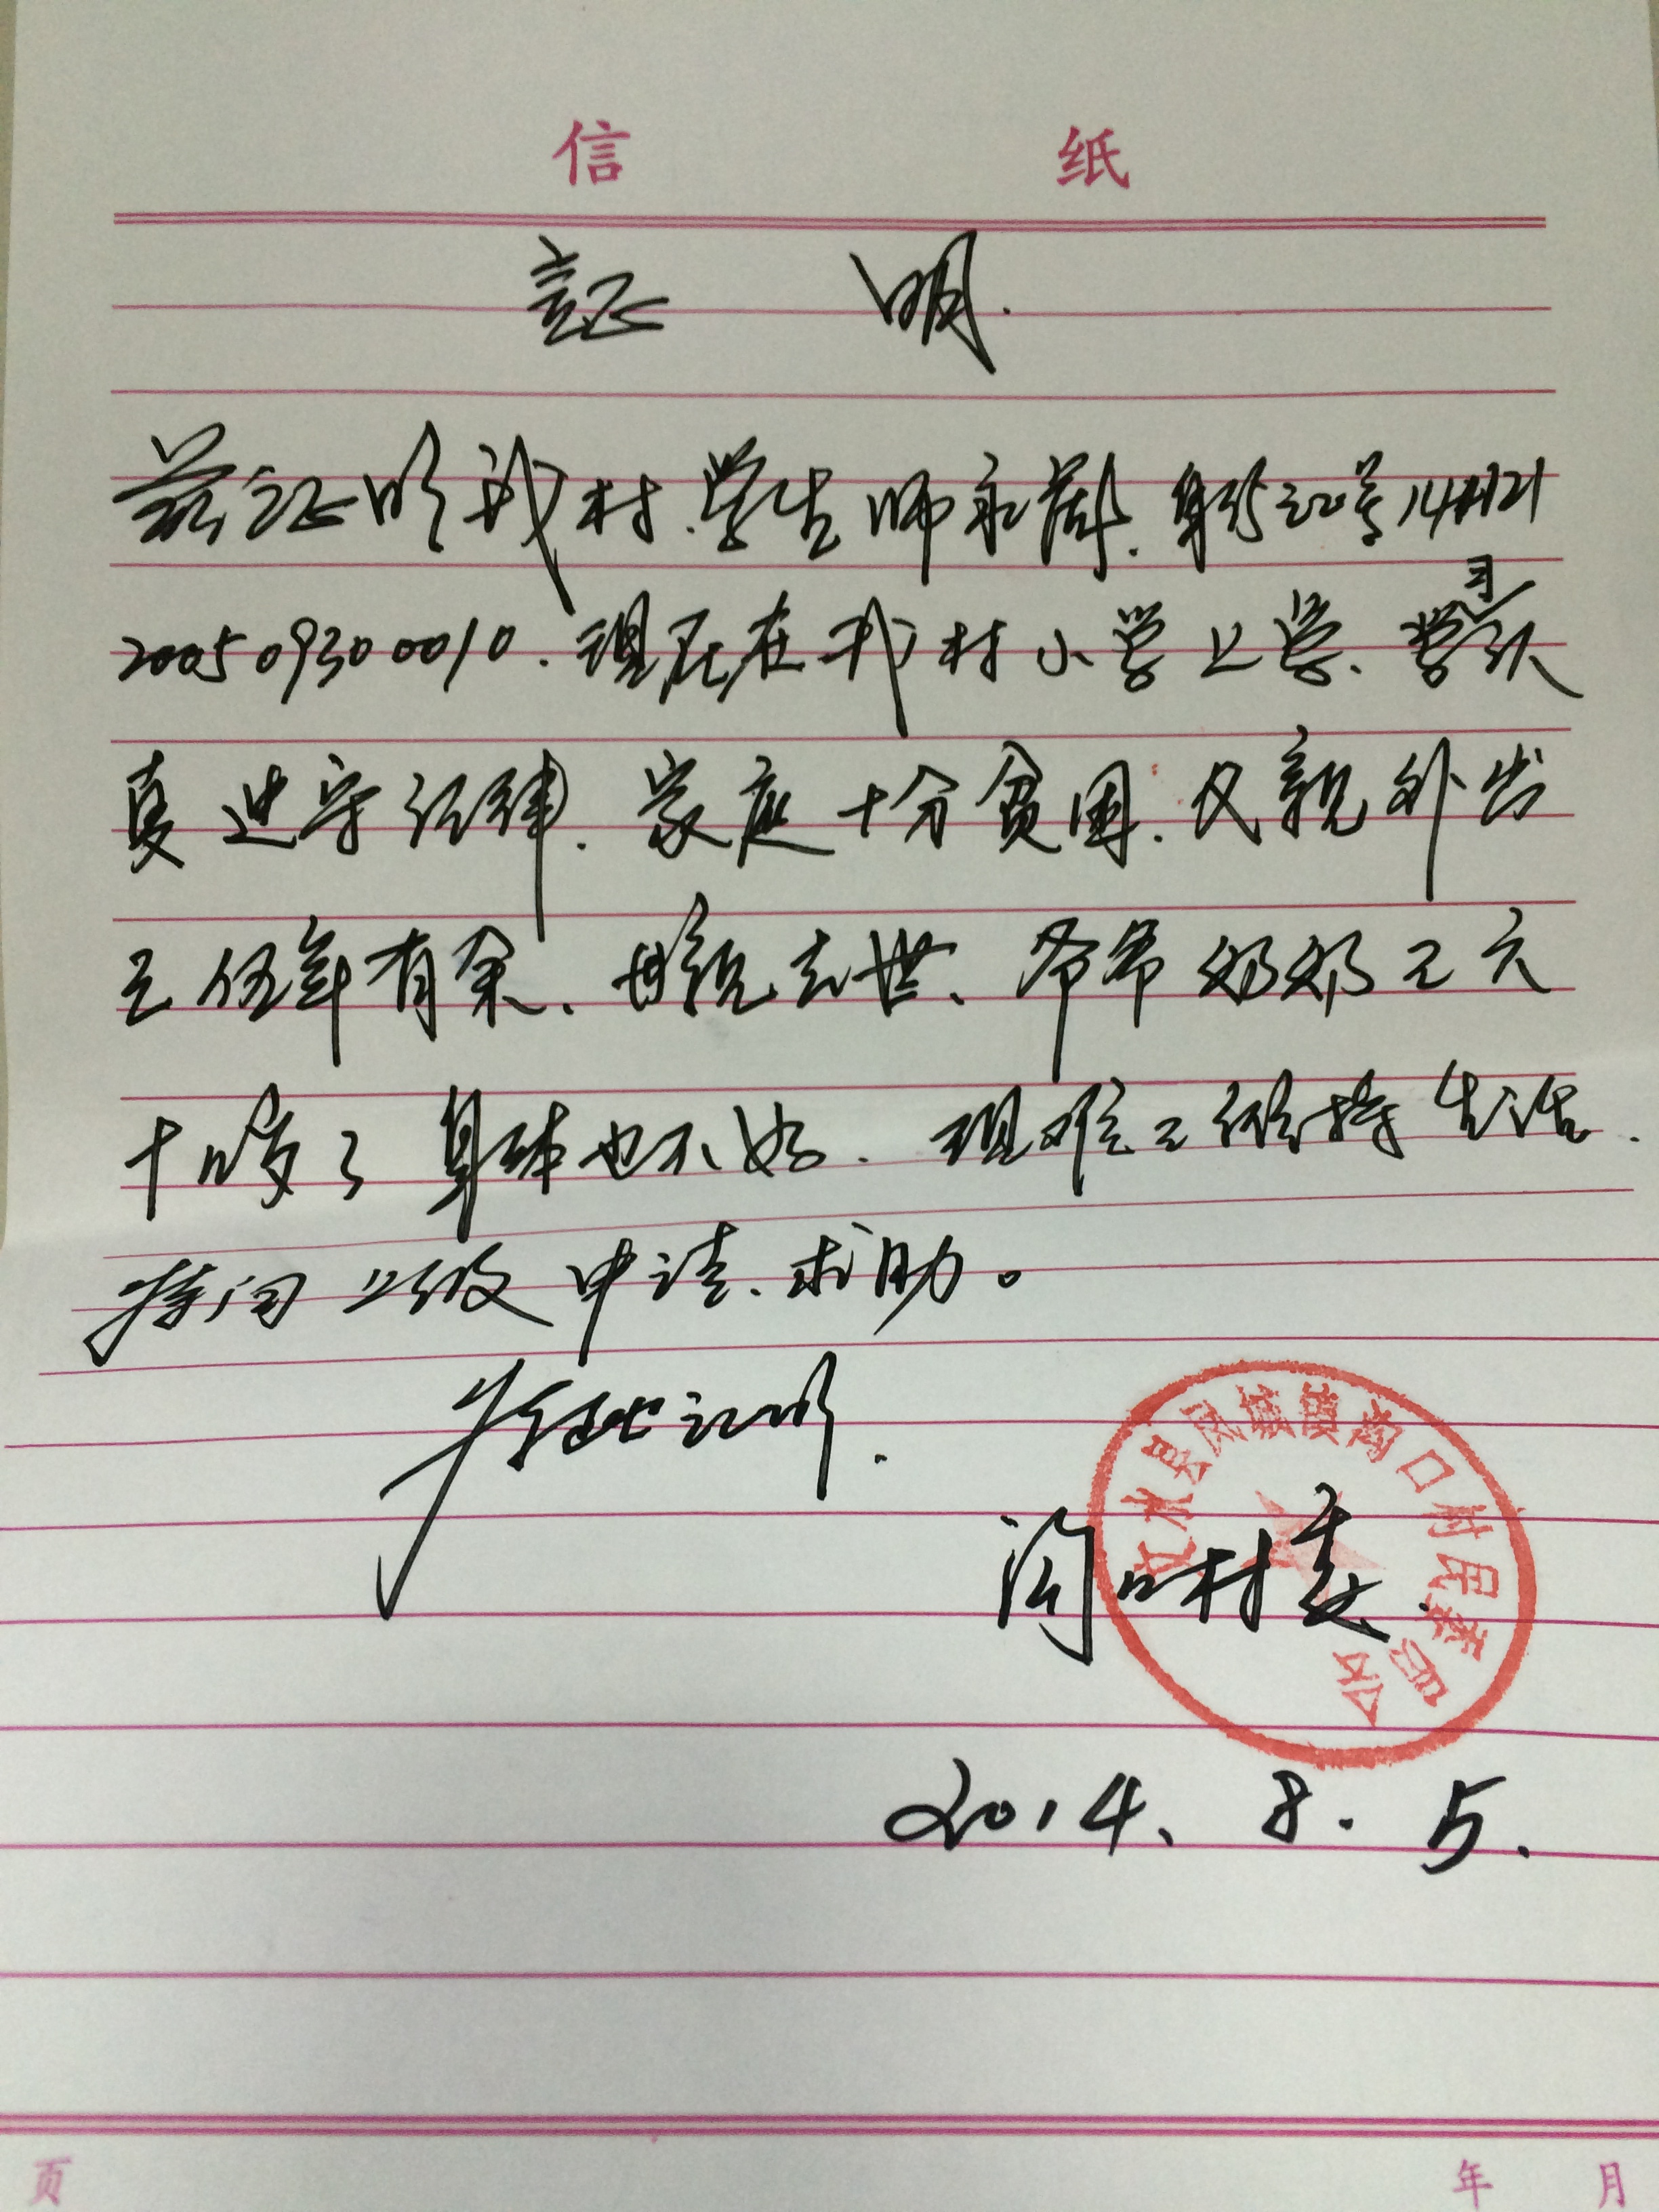 信 纸
証 明.
兹证明我村.学生师永萍.身份证号141121
200509300010.现在在我村小学上学、学习认
真遵守纪律.家庭十分贫困.父亲外出
已伍年有余.母亲去世、爷爷奶奶已六
十岁了身体也不好.现难已维持生活.
特向上级申请.求助。
特此证明.
沟口村委.
文水县凤城镇沟口村民委员会
2014、8.5.
页 年 月